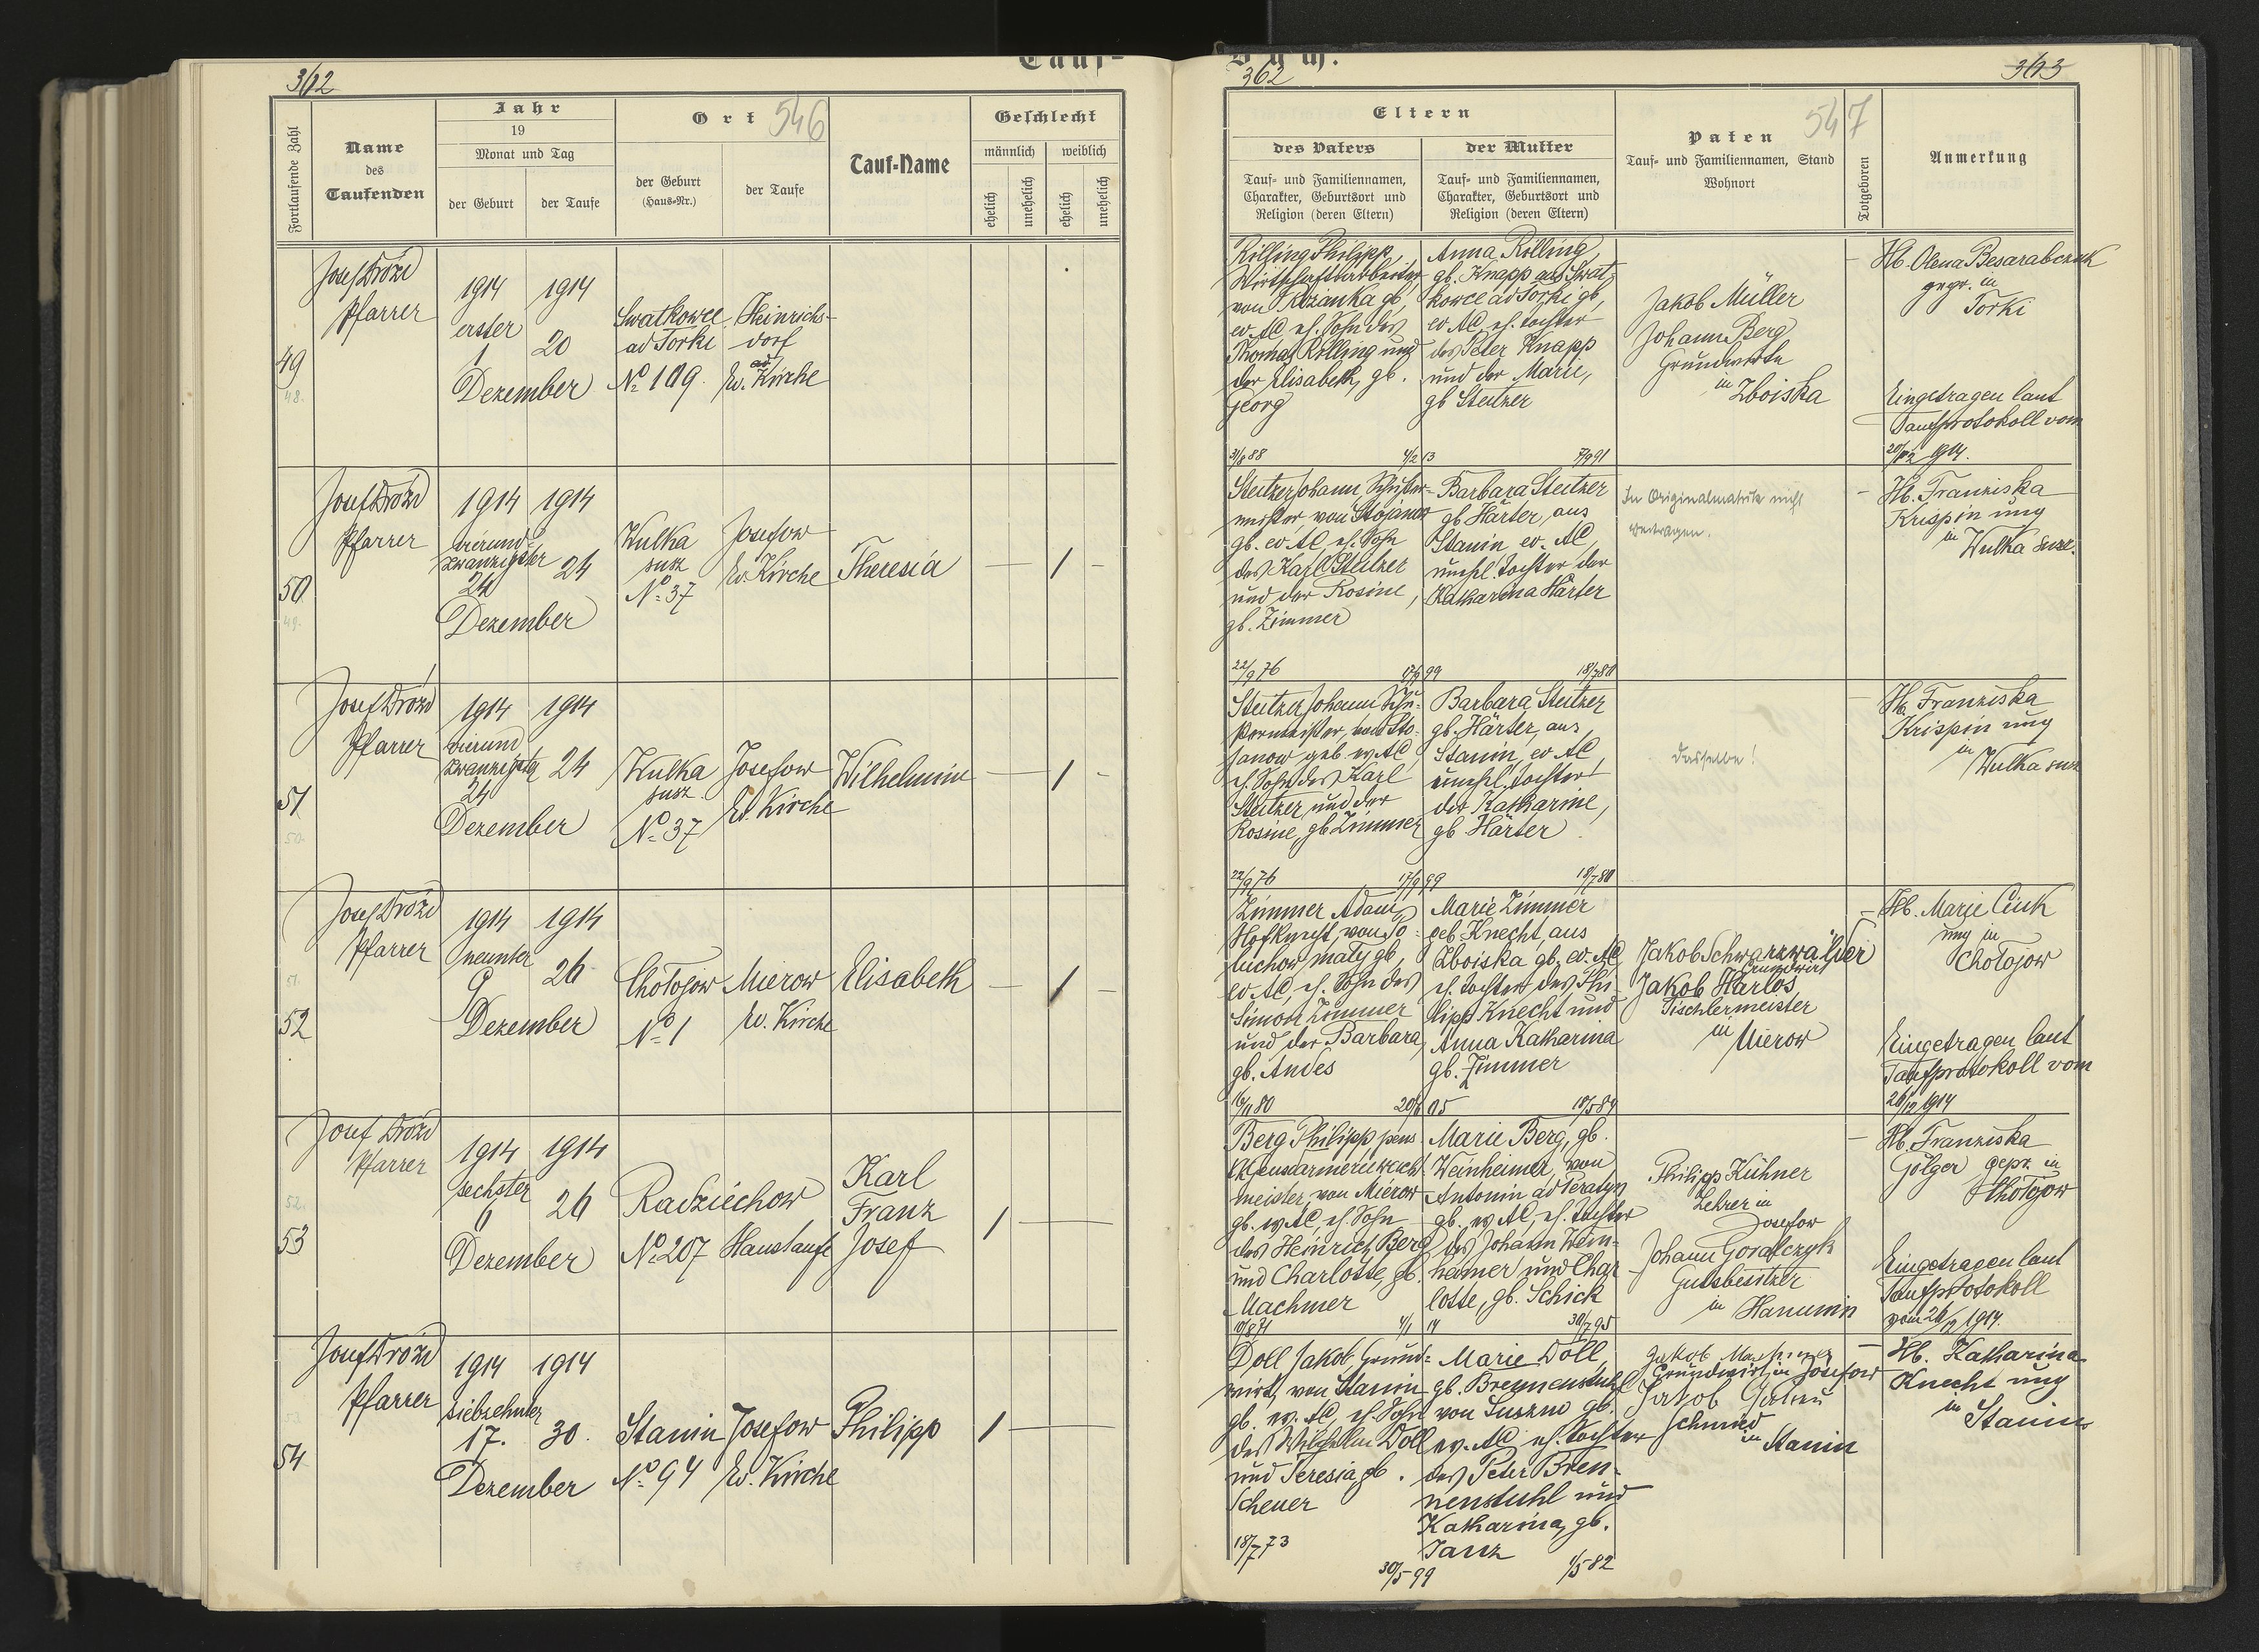 Tauf-
362
Fortlaufende Zahl
Name
des
Taufenden
Jahr
19
Monat und Tag
der Geburt
der Taufe
Ort
546
der Geburt
(Haus-Nr.)
der Taufe
Tauf-Name
Geschlecht
männlich
weiblich
ehelich
unehelich
ehelich
unehelich
49
48.
Josef Drózd
Pfarrer
1914
erster
1
Dezember
1914
20
Swatkowce
ad Torki
No 109.
Heinrichs-
dorf
ad
Ev. Kirche
50
49.
Josef Drózd
Pfarrer
1914
vierund-
zwanzigster
24
Dezember
1914
24
Wulka
susz
No 37
Josefow
Ev. Kirche
Theresia
— 1 –
51
50.
Josef Drózd
Pfarrer
1914
vierund
zwanzigster
24
Dezember
1914
24
Wulka
susz.
No 37
Josefow
Ev. Kirche
Wilhelmine
— 1 –
51.
52
Josef Drózd
Pfarrer
1914
neunter
9
Dezember
1914
26
Chołojow
No 1
Mierow
Ev. Kirche
Elisabeth
— 1 –
52.
53
Josef Drózd
Pfarrer
1914
sechster
6
Dezember
1914
26
Radziechow
No 207
Haustaufe
Karl
Franz
Josef
1 —
53.
54
Josef Drózd
Pfarrer
1914
siebzehnter
17.
Dezember
1914
30.
Stanin
No 94
Josefow
Ev. Kirche
Philipp
1 —
Buch.
362
363
Eltern
des Vaters
Tauf- und Familiennamen,
Charakter, Geburtsort und
Religion (deren Eltern)
der Mutter
Tauf- und Familiennamen,
Charakter, Geburtsort und
Religion (deren Eltern)
Paten
547
Tauf- und Familiennamen, Stand
Wohnort
Totgeboren
Anmerkung
Rilling Philipp,
Wirtschaftsarbeiter
von Rozanka gb,
ev. AC, eh. Sohn des
Thomas Rilling und
der Elisabeth, gb.
Georg
31/8 88
4/2 13
Anna Rilling,
gb. Knapp aus Swat-
kowce ad Torki gb,
ev. AC, eh. Tochter
des Peter Knapp
und der Marie,
gb Steitzer
7/9 91
Jakob Müller
Johann Berg
Grundwirte
in Zboiska
– Hb. Olena Besarabczuk
gepr. in
Torki
Eingetragen laut
Taufprotokoll vom
20/12 1914.
Steitzer Johann Schuster-
meister von Stojanow
gb. ev. AC, eh. Sohn
des Karl Steitzer
und der Rosine,
gb. Zimmer
22/9 76
17/9 99
Barbara Steitzer
gb Härter, aus
Stanin ev. AC,
unehl. Tochter der
Katharina Härter
18/7 80
In Originalmatrik nicht
– Hb. Franziska
Krispin ung
in Wulka susz.
Steitzer Johann Schu-
stermeister, von Sto-
janow geb. ev. AC,
eh. Sohn des Karl
Steitzer und der
Rosine, gb Zimmer
22/9 76
17/9 99
Barbara Steitzer
gb. Härter, aus
Stanin, ev. AC,
unehel. Tochter
der Katharine,
gb Härter
18/7 80
dasselbe!
– Hb. Franziska
Krispin ung
in
Wulka susz
Zimmer Adam,
Hofknecht, von To-
luchow maty gb,
ev. AC, eh. Sohn des
Simon Zimmer
und der Barbara,
gb. Andes
16/11 80
Marie Zimmer
geb Knecht, aus
Zboiska gb, ev. AC,
eh. Tochter des Phi-
lipp Knecht und
Anna Katharina
gb. Zimmer
Jakob Schwarzwälder
Grundwirt
Jakob Harlos
Tischlermeister
in
Mierow
– Hb. Marie Ciuk
ung in
Chołojow
Eingetragen laut
Taufprotokoll vom
26/12 1914
Berg Philipp pens
meister, von Mierow
gb. ev. AC, eh. Sohn
des Heinrich Berg
und Charlotte, gb.
Machmer
10/8 71
4/1 14
Marie Berg, gb.
Weinheimer, von
Antonin ad Peratyn
gb. ev. AC, eh. Tochter
des Johann Wein-
heimer und Char
lotte, gb. Schick
30/7 95
Philipp Kühner
Lehrer in
Josefow
Johann Goralczyk
Gutsbesitzer
in Hanunin
– Hb. Franziska
Gölger gepr. in
Chołojow
Eingetragen laut
Taufprotokoll
vom 26/12 1914.
Doll Jakob, Grund-
wirt, von Stanin
gb. ev. AC, eh. Sohn
des Wilhelm Doll
und Teresia, gb.
Scheuer
18/7 73
30/5 99
Marie Doll,
gb. Brennenstuhl
von Suszno gb.
ev. AC, eh. Tochter
des Peter Bren-
nenstuhl und
Katharina, gb.
Janz
1/5 82
Jakob
Grundwirt in Josefow
Jakob
Schmied
in Stanin
– Hb. Katharina
Knecht ung
in
Stanin